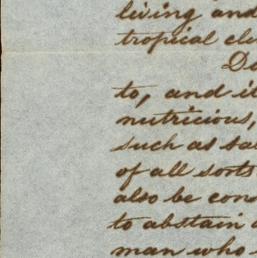 living and
tropical
to, and it
nutricious,
such as
of all sorts
also be
to abstain
man who